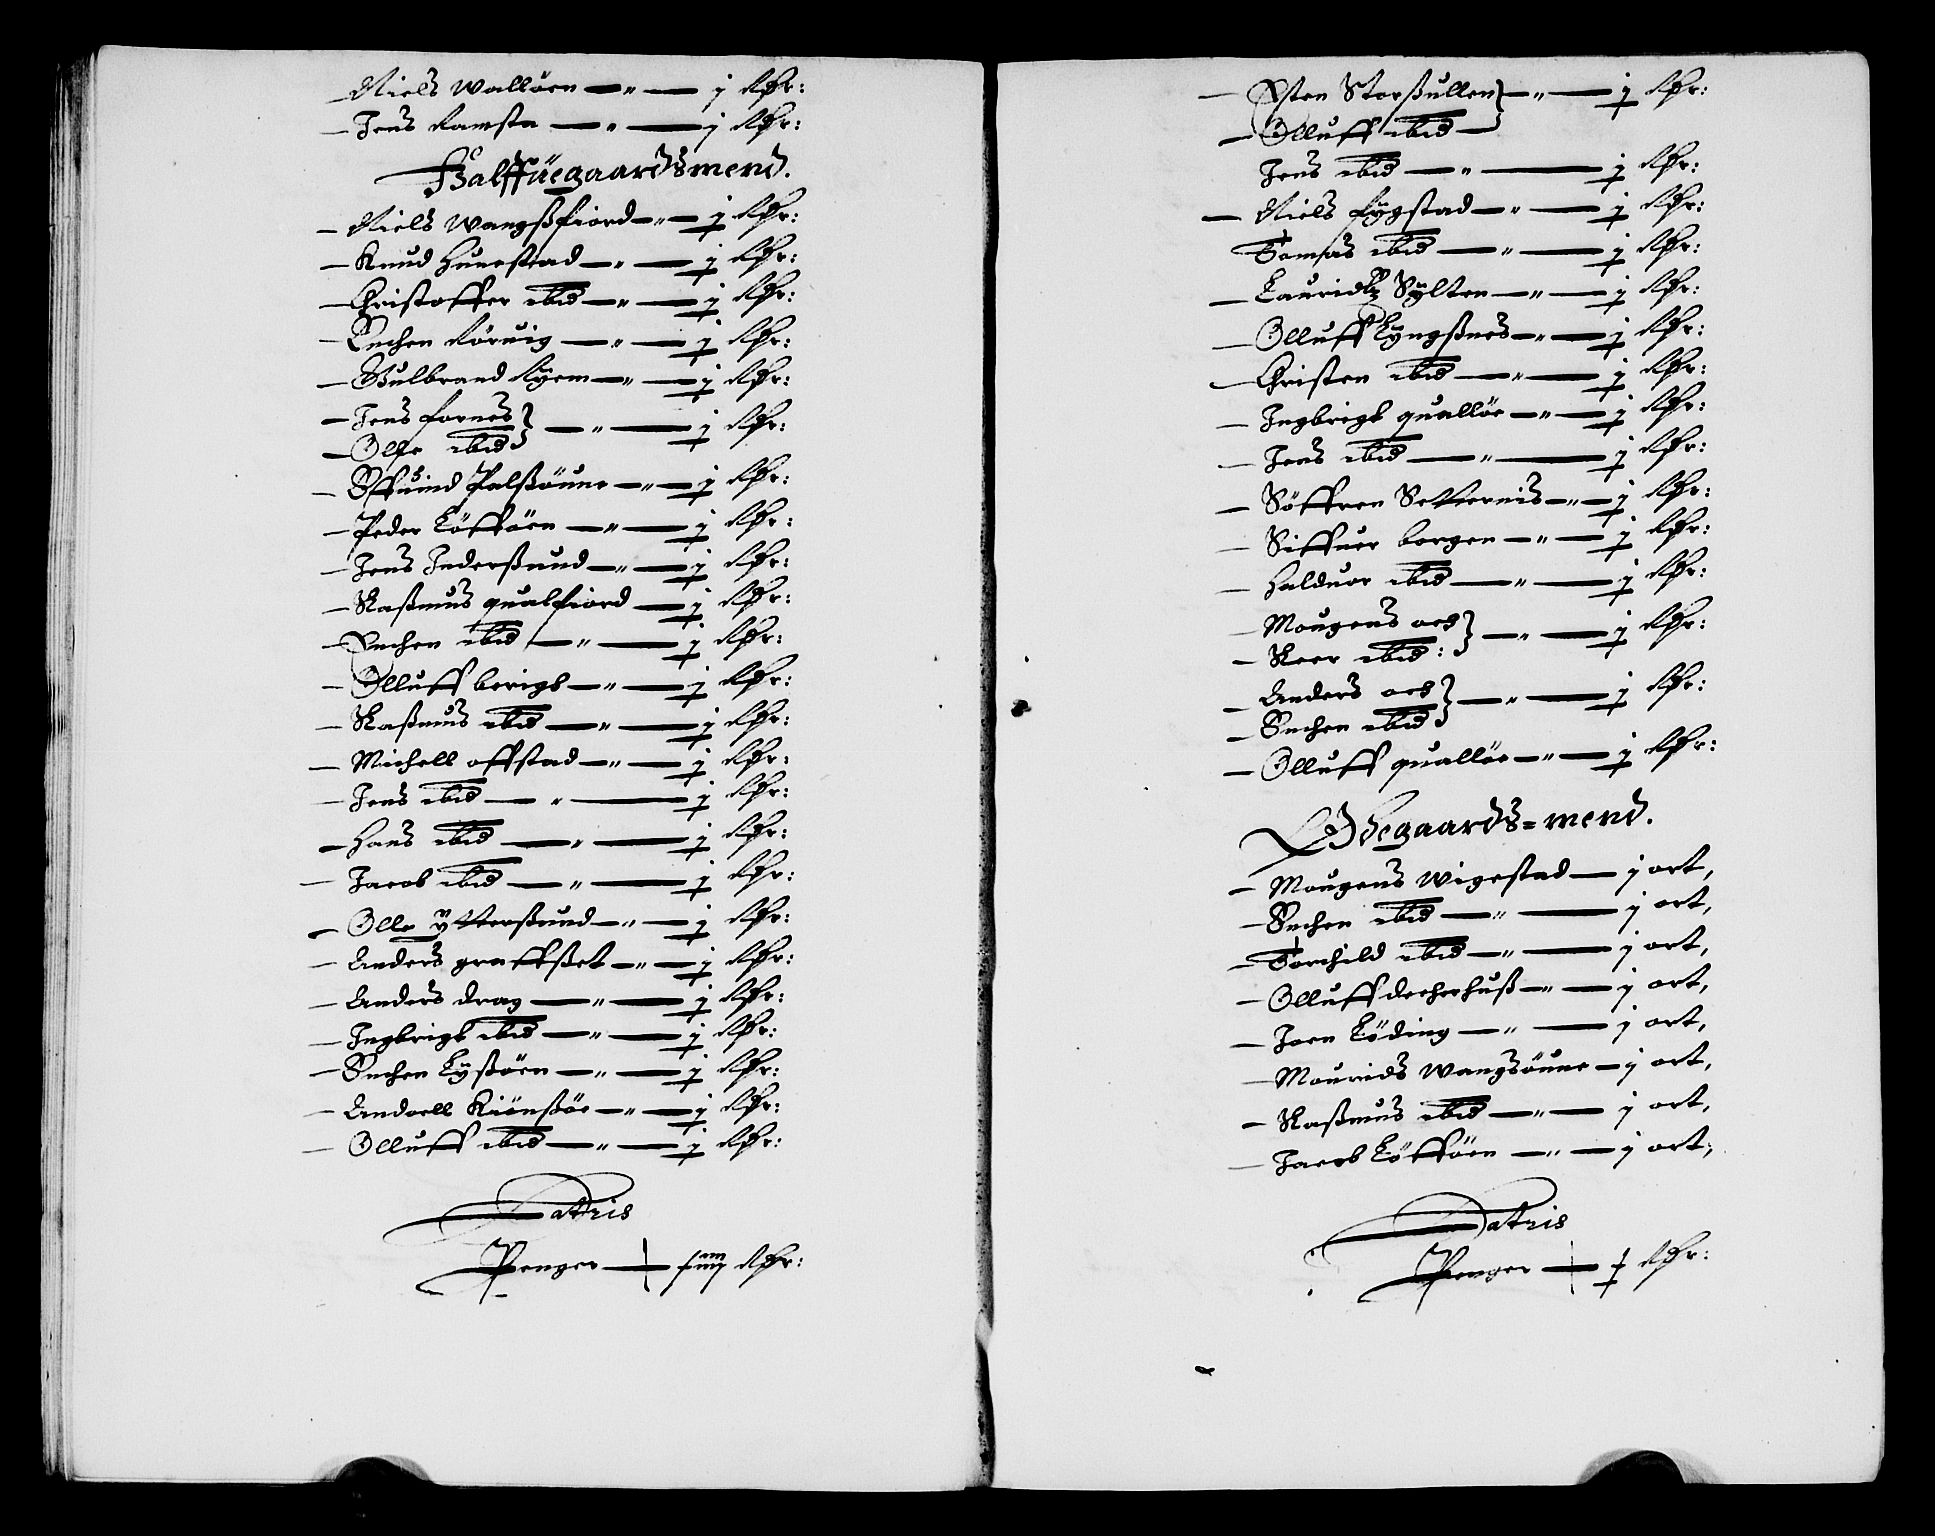 Niels Walløen — " — j Rdr:
Jens Ramsta — " — j Rdr:
Halffüegaardsmend.
Niels Wangsfiord — " — j Rdr:
Knud Hunestad — " — j Rdr:
Christoffer ibid — " — j Rdr:
Suchen Röruig — " — j Rdr:
Gulbrand Ryem — " — j Rdr:
Jens fornes
Olle ibid } — " — j Rdr:
Effuind Palßöune — " — j Rdr:
Peder Löfföen — " — j Rdr:
Jens Inderßund — " — j Rdr:
Raßmus qualfiord — j Rdr:
Suchen ibid — " — j Rdr:
Olluff berigh — " — j Rdr:
Raßmus ibid — " — j Rdr:
Michell offstad — " — j Rdr:
Jens ibid — " — j Rdr:
Hans ibid — " — j Rdr:
Jacob ibid — " — j Rdr:
Olle ÿtterßund — " — j Rdr:
Anders greffßet — " — j Rdr:
Anders drag — " — j Rdr:
Ingbrigt ibid — " — j Rdr:
Suchen Lyßöen — " — j Rdr:
Andoell Kiönßöe — " — j Rdr:
Olluff ibid — " — j Rdr:
Latris
Penger — Rdr:
Osten Storßullen
Olluff ibid } — " — j Rdr:
Jens ibid — " — j Rdr:
Niels fygstad — " — j Rdr:
Tomas ibid — " — j Rdr:
Lauridtz Sÿlten — " — j Rdr:
Olluff Lyngßnes — " — j Rdr:
Christen ibid — " — j Rdr:
Ingbrigt quallöe — " — j Rdr:
Jens ibid — " — j Rdr:
Söffren Setternis — " — j Rdr:
Siffuer borgen — " — j Rdr:
Halduor ibid — " — j Rdr:
Mougens och
Reer ibid: } — " — j Rdr:
Anders och
Suchen ibid } — " — j Rdr:
Olluff quallöe — " — j Rdr:
Ödegaards=mend.
Mougens Wigestad — j ort,
Suchen ibid — " — j ort,
Torchild ibid — " — j ort,
Olluff decherhuß — " — j ort,
Joen Löding — " — j ort,
Mourids Wangsöune — j ort,
Raßmus ibid — " — j ort,
Jacob Löfföen — " — j ort,
Latris
Penger — j Rdr: